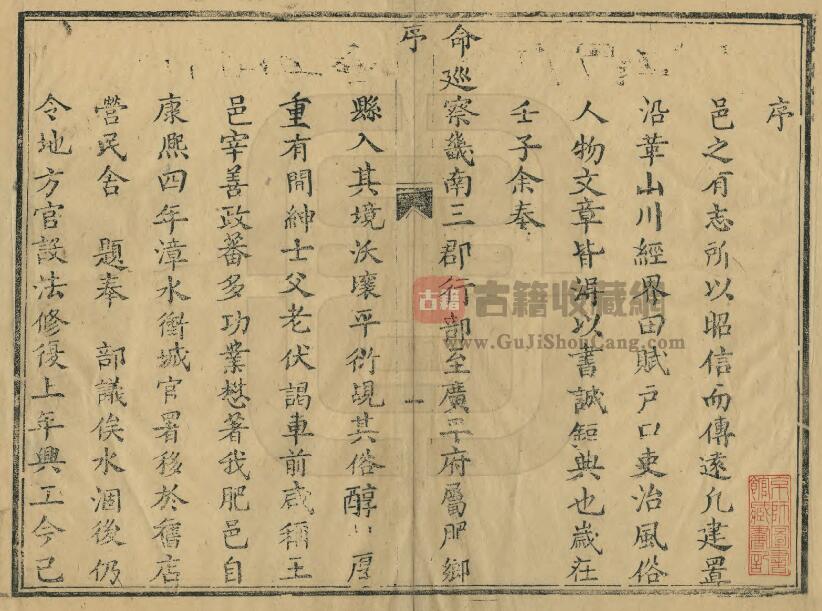 序
邑之有志所以昭信而傳遠凡建置
沿革山川經界田賦戶口吏治風俗
人物文章皆淂以書誠鉅典也歲在
壬子余奉
命廵察畿南三郡行部至廣平府屬肥鄉
序
一
縣入其境沃壤平衍覘其俗醇厚
重有間紳士父老伏謁車前咸稱王
邑宰善政蕃多功業懋著我肥邑自
康熙四年漳水衝城官署移於舊店
營民舍 題奉 部議俟水涸後仍
令地方官設法修復上年興工今已
古籍
古籍收藏網
www.GuJiShouCang.com
京師圖書
館藏書記